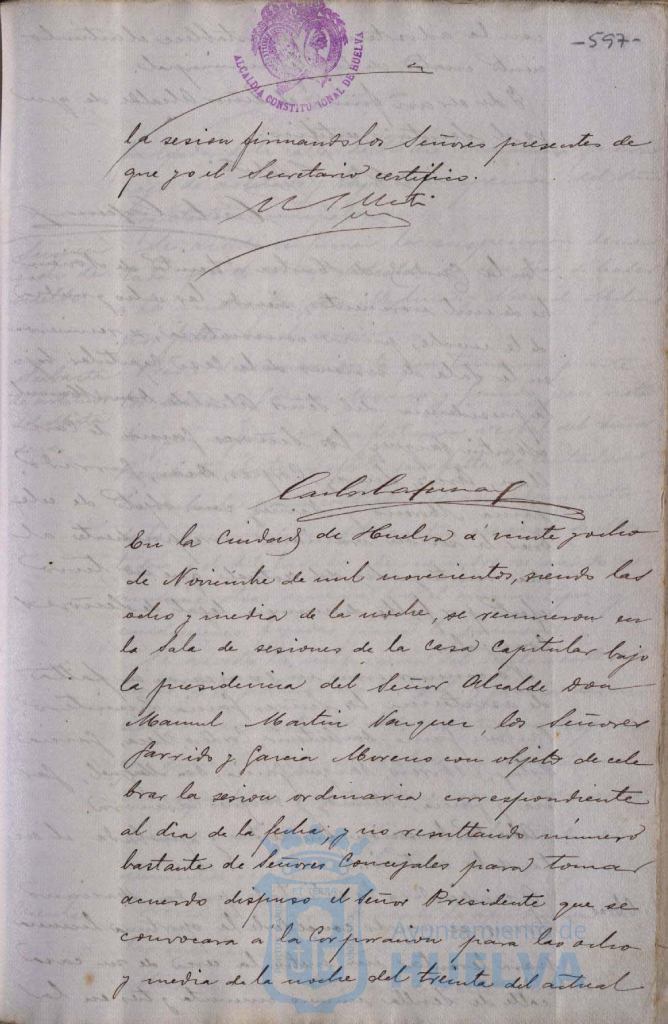 -597-
ALCALDIA CONSTITUCIONAL DE HUELVA
la sesion firmando los Señores presentes de
que yo el Secretario certifico.
En la Ciudad de Huelva á veinte y ocho
de Noviembre de mil novecientos, siendo las
ocho y media de la noche, se reunieron en
la Sala de sesiones de la casa Capitular bajo
la presidencia del Señor Alcalde Don
Manuel Martin Vazquez, los Señores
Garrido y Garcia Moreno con objeto de cele
brar la sesion ordinaria correspondiente
al dia de la fecha, y no resultando número
bastante de Señores Concejales para tomar
acuerdo dispuso el Señor Presidente que se
convocara a la Corporacion para las ocho
y media de la noche del treinta del actual
Ayuntamiento de
HUELVA